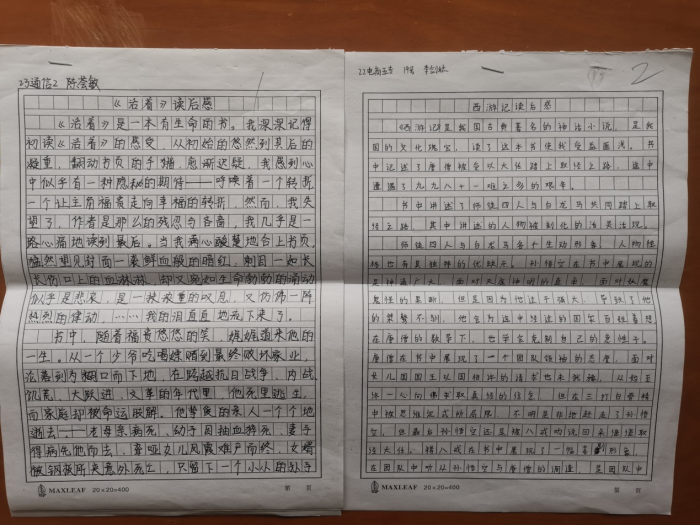 23通信2 陈蓥敏
《活着》读后感
《活着》是一本有生命的书。我深深记得
初读《活着》的感受，从初始的悠然到其后的
凝重，翻动书页的手愈渐迟疑，我感到心
中似乎有一种隐秘的期待——呼唤着一个转折
一个让主角福贵走向幸福的转折，然而，我失
望了，作者是那么的残忍与吝啬，我几乎是一
路心痛地读到最后。当我满心酸楚地合上书页，
猛然望见封面一袭鲜血般的暗红，刺目一如长
长伤口上的血淋淋，却又宛如生命勃勃的涌动
似乎是悲哀，是一抹凝重的叹息，又仿佛一阵
热烈的律动，……我的泪直直地流下来了。
书中，随着福贵悠悠的笑，娓娓道来他的
一生。从一个少爷吃喝嫖赌到最终败坏家业，
沦落到为糊口而下地，在跨越抗日战争、内战、
饥荒、大跃进、文革的年代里，他死里逃生，
而家庭却被命运肢解。他挚爱的亲人一个个地
逝去——老母亲病死、幼子因抽血猝死、妻子
得病先他而去、聋哑女儿风霞难产而终、女婿
被钢板所夹意外死亡，只留下一个小小的外孙
MAXLEAF 20×20=400 第 页
22电商五专 19号
2
西游记读后感
《西游记》是我国古典著名的神话小说，是我
国的文化瑰宝，读了这本书使我受益匪浅。书
中记述了唐僧被委以大任踏上取经之路，途中
遭遇了九九八十一难之多的艰辛。
书中讲述了师徒四人与白龙马共同踏上取
经之路，其中讲述的人物被刻化的活灵活现。
师徒四人与白龙马各个生动形象，人物性
格也有其独特的优缺点。孙悟空在书中展现的
是神通广大，面对
魔怪的果断，但是因为他过于强大，导致了他
的桀骜不驯，他会为途中经过的国家百姓着想
在唐僧的教导下，也学会克制自己的急性子。
唐僧在书中展现了一个团队领袖的态度，面对
女儿国国王以国相许的请书也未犹豫，从始至
终一心向佛求取真经的信念，但在三打白骨精
中被思维仪式所局限，不明是非地赶走了孙悟
空，但最后孙悟空还是被八戒劝说回来继续取
经大任。猪八戒在书中展现了一幅喜剧形象，
在团队中听从孙悟空与唐僧的调遣，是团队中
MAXLEAF 20×20=400 第 页